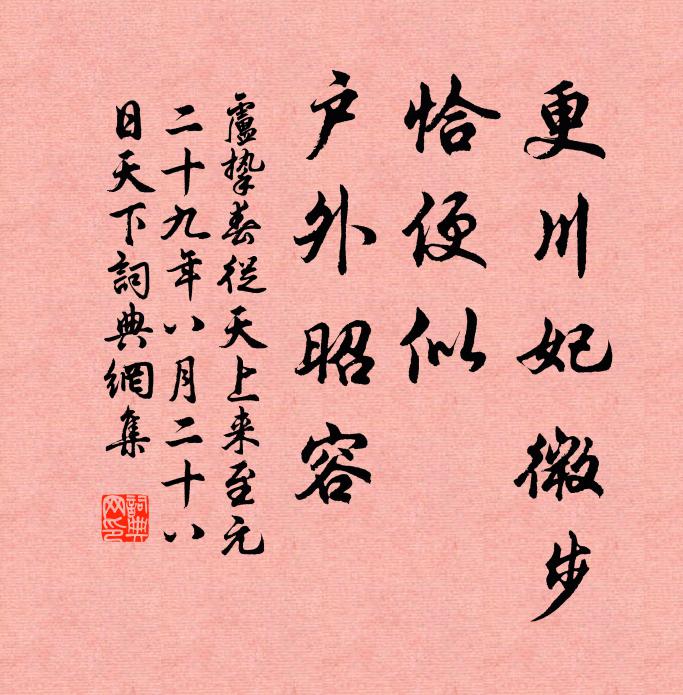 更川妃微步
恰便似
户外昭容
盧摯春從天上来至元
二十九年八月二十八
日天下詞典網集
詞典網印